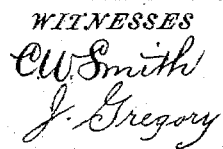 WITNESSES
C.W. Smith
J. Gregory